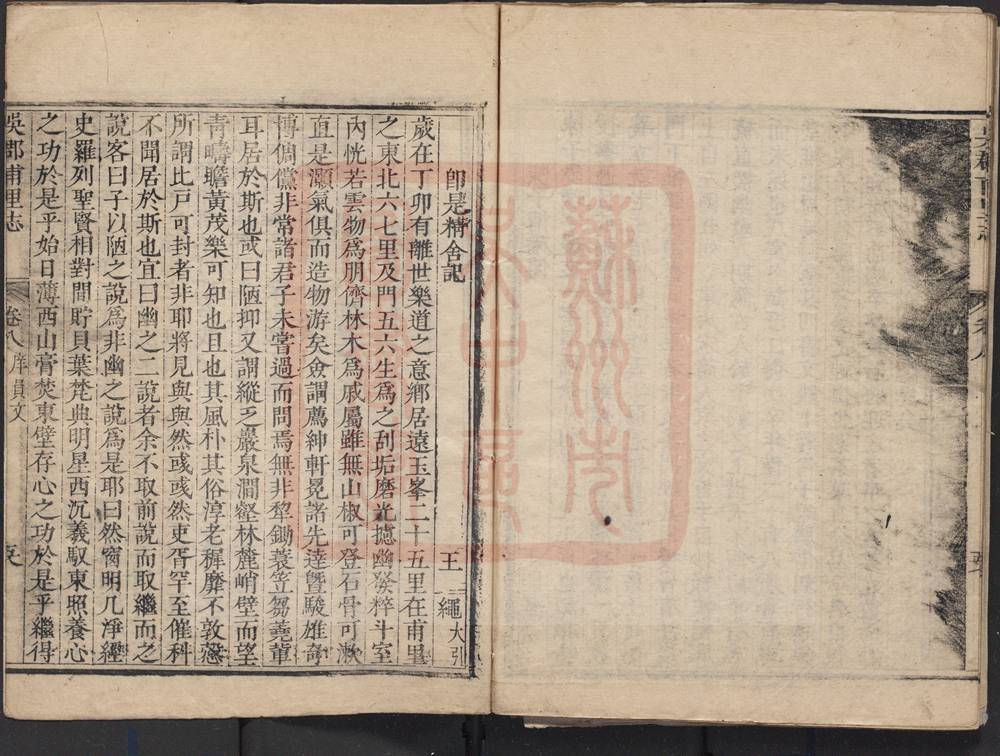 即是精舍記
王 繩 大引
歲在丁卯有離世樂道之意鄉居遠玉峯二十五里在甫里
之東北六七里及門五六生爲之刮垢磨光攄幽發粹斗室
內恍若雲物爲朋儕林木爲戚屬雖無山椒可登石骨可漱
直是灝氣俱而造物游矣僉謂薦紳軒冕諸先達暨駿雄奇
博倜儻非常諸君子未嘗過而問焉無非犁鋤蓑笠芻蕘輩
耳居於斯也或曰陋抑又謂縱乏嚴泉澗壑林麓峭壁而望
青疇瞻黃茂樂可知也且也其風朴其俗淳老穉靡不敦慤
所謂比戸可封者非耶將見與與然彧彧然吏胥罕至催科
不聞居於斯也宜曰幽之二說者余不取前說而取繼而之
說客曰子以陋之說爲非幽之說爲是耶曰然窗明几凈經
史羅列聖賢相對間貯貝葉梵典明星西沉羲馭東照養心
之功於是乎始日薄西山膏焚東壁存心之功於是乎繼得
吳郡甫里志
卷八 庠員文